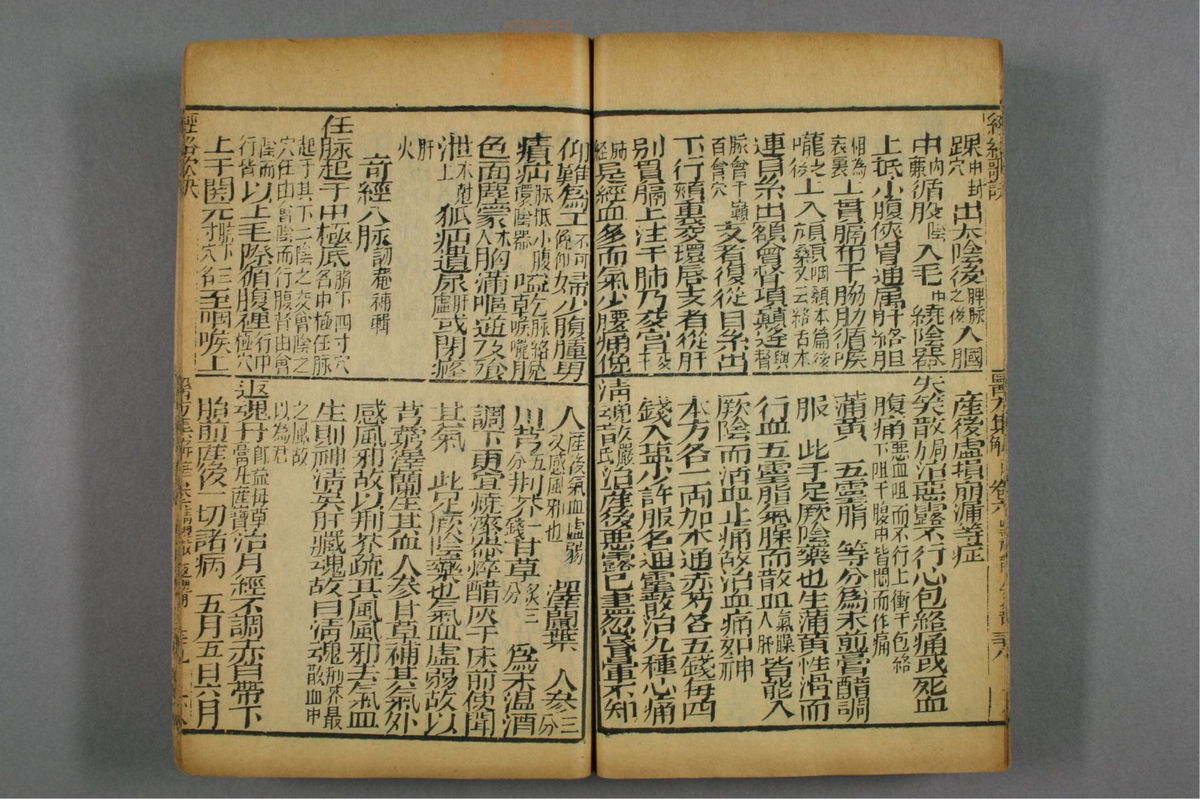 踝中封穴出太陰後脾脈之後入膕
中內廉循股陰入毛中繞陰器
上抵小腹俠胃通屬肝絡胆
相為表裏上貫膈布于脇肋循喉
嚨之後上入頏顙咽顙本篇後又云絡舌本
連目系出額會督項巔逢與督
脉會于巔百會穴支者復從目系出
下行頰裏交環唇支者從肝
別貫膈上注于肺乃交宮交于肺經
是經血多而氣少腰痛俛
仰難為工不可俛仰婦少腹腫男
㿗疝脉抵小腹環陰器嗌乾脉絡喉嚨脫
色面塵蒙木人胸滿嘔逆及飧
泄木尅土狐疝遺尿肝虛或閉癃
肝火
奇經八脉訒菴補輯
任脉起于中極底臍下四寸穴名中極任脉
起于其下二陰之交會陰之穴任由會陰而行腹督由會
陰而行背以上毛際循腹裡行中極穴
上于關元臍下三寸穴名至咽喉上
產後虛損崩漏等症
失笑散局方治惡露不行心包絡痛或死血
腹痛惡血阻而不行上衝于包絡下阻于腹中皆悶而作痛
蒲黃 五靈脂 等分為末煎膏醋調
服 此手足厥陰藥也生蒲黃性滑而
行血五靈脂氣臊而散血氣臊入肝皆能入
厥陰而活血止痛故治血痛如神
本方各一兩加木通赤芍各五錢每四
錢入鹽少許服名通靈散治九種心痛
清魂散嚴氏治產後惡露已盡忽昏暈不知
人產後氣血虛弱又感風邪也 澤蘭葉 人參三分
川芎五分荊芥一錢甘草炙三分 為末溫酒
調下更宜燒漆器淬醋炭于床前使聞
其氣 此足厥陰藥也氣血虛弱故以
芎藭澤蘭生其血人參甘草補其氣外
感風邪故以荊芥疏其風風邪去氣血
生則神清矣肝藏魂故曰清魂荊芥最散血中
之風故以為君
返魂丹即益母草膏丸產寶治月經不調赤白帶下
胎前產後一切諸病 五月五日六月